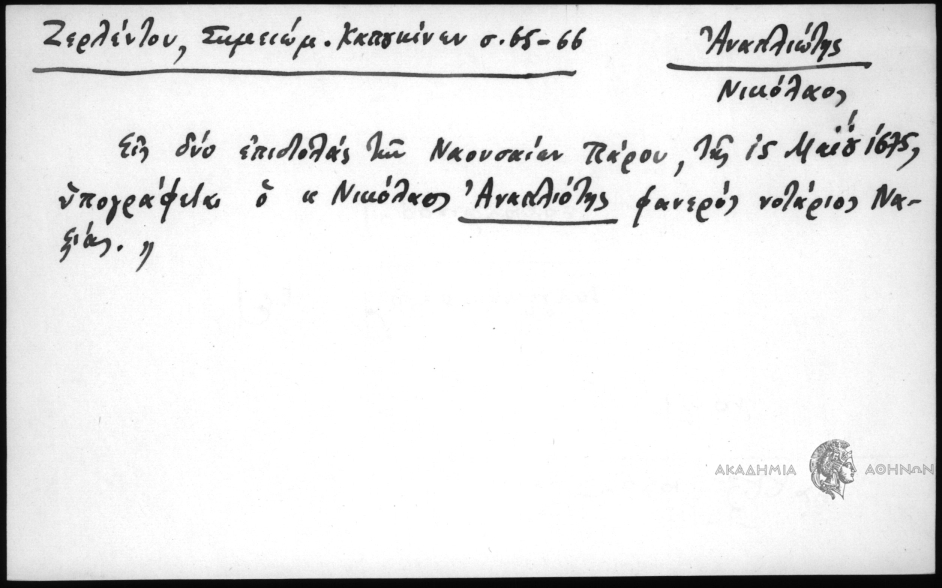 Ζερλέντου, Σημειώμ. Καπουκίνων σ. 65-66
Ἀναπλιώτης
Νικόλαος
Εἰς δύο ἐπιστολάς τῶν Ναουσαίων Πάρου, τῆς 15 Μαΐου 1675,
ὑπογράφεται ὁ κ Νικόλαος Ἀναπλιότης φανερός νοτάριος Να-
ξιάς. »
ΑΚΑΔΗΜΙΑ ΑΘΗΝΩΝ